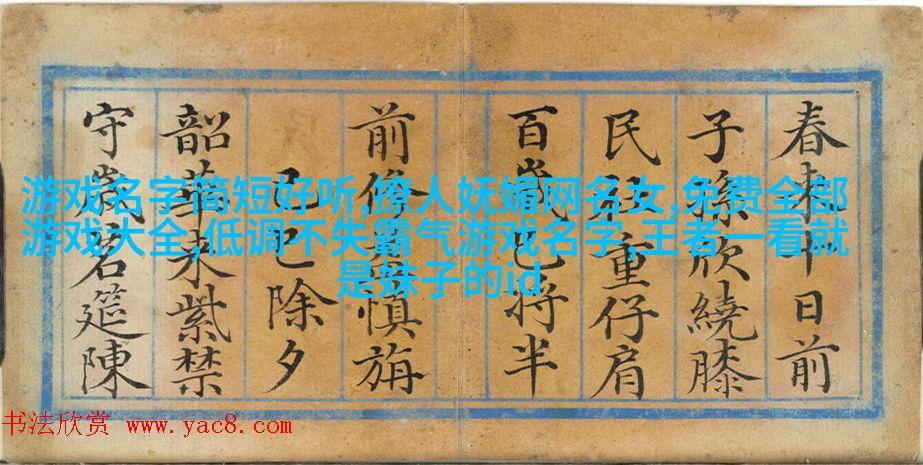 春来十日前
子孫欣繞膝
民社重仔肩
百歲已將半
前脩慎旃
己巳除夕
韶華来紫禁
守歲名筵陳
游戏名字简短好听,撩人妩媚网名女,免费全部
游戏大全,低调不失霸气游戏名字,王者一看就
是妹子的id
书法欣赏 www.yac8.com